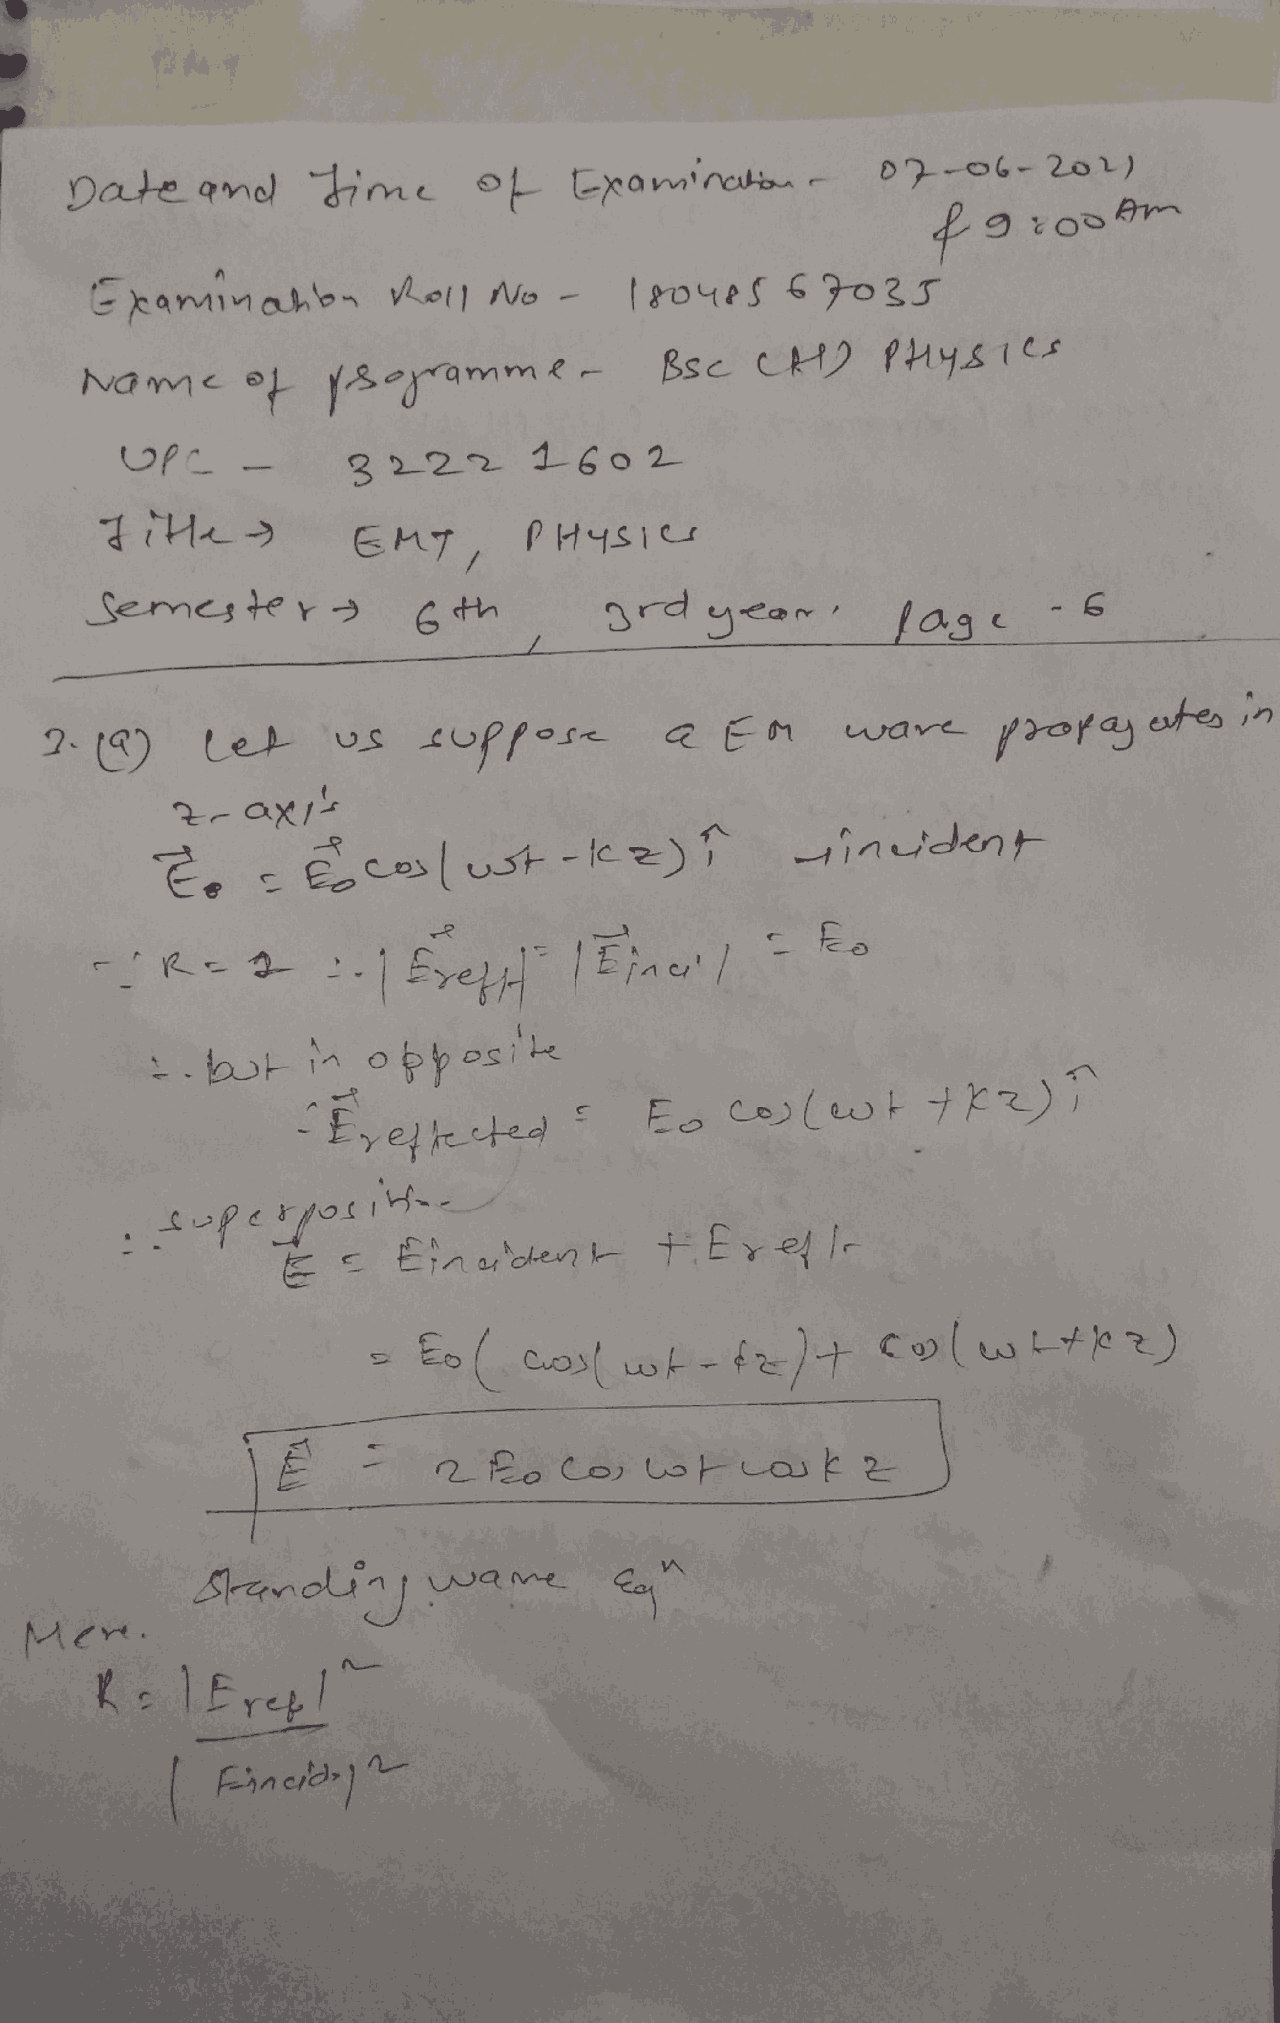 Date and Time of Examination - 07-06-2021
& 9:00 Am
Examination Roll No - 18048567035
Name of programme - Bsc (H) PHYSICS
UPC - 32221602
Title → EMT, PHYSICS
Semester → 6th, 3rd year. Page - 6
(a) Let us suppose a EM wave propagates in
z-axis
E⃗₀ = E⃗₀ cos(wt - kz) î → incident
∵ R = 1 ∴ |E⃗refl| = |E⃗inci| = E₀
∴ but in opposite
∴ E⃗reflected = E₀ cos(wt + kz) î
∴ superposition
E⃗ = Eincident + Erefl
= E₀( cos(wt - kz) + cos(wt + kz)
E⃗ = 2 E₀ cos wt cos k z
Standing wave Eqⁿ
Here.
R = |Eref|²
|Eincid|²